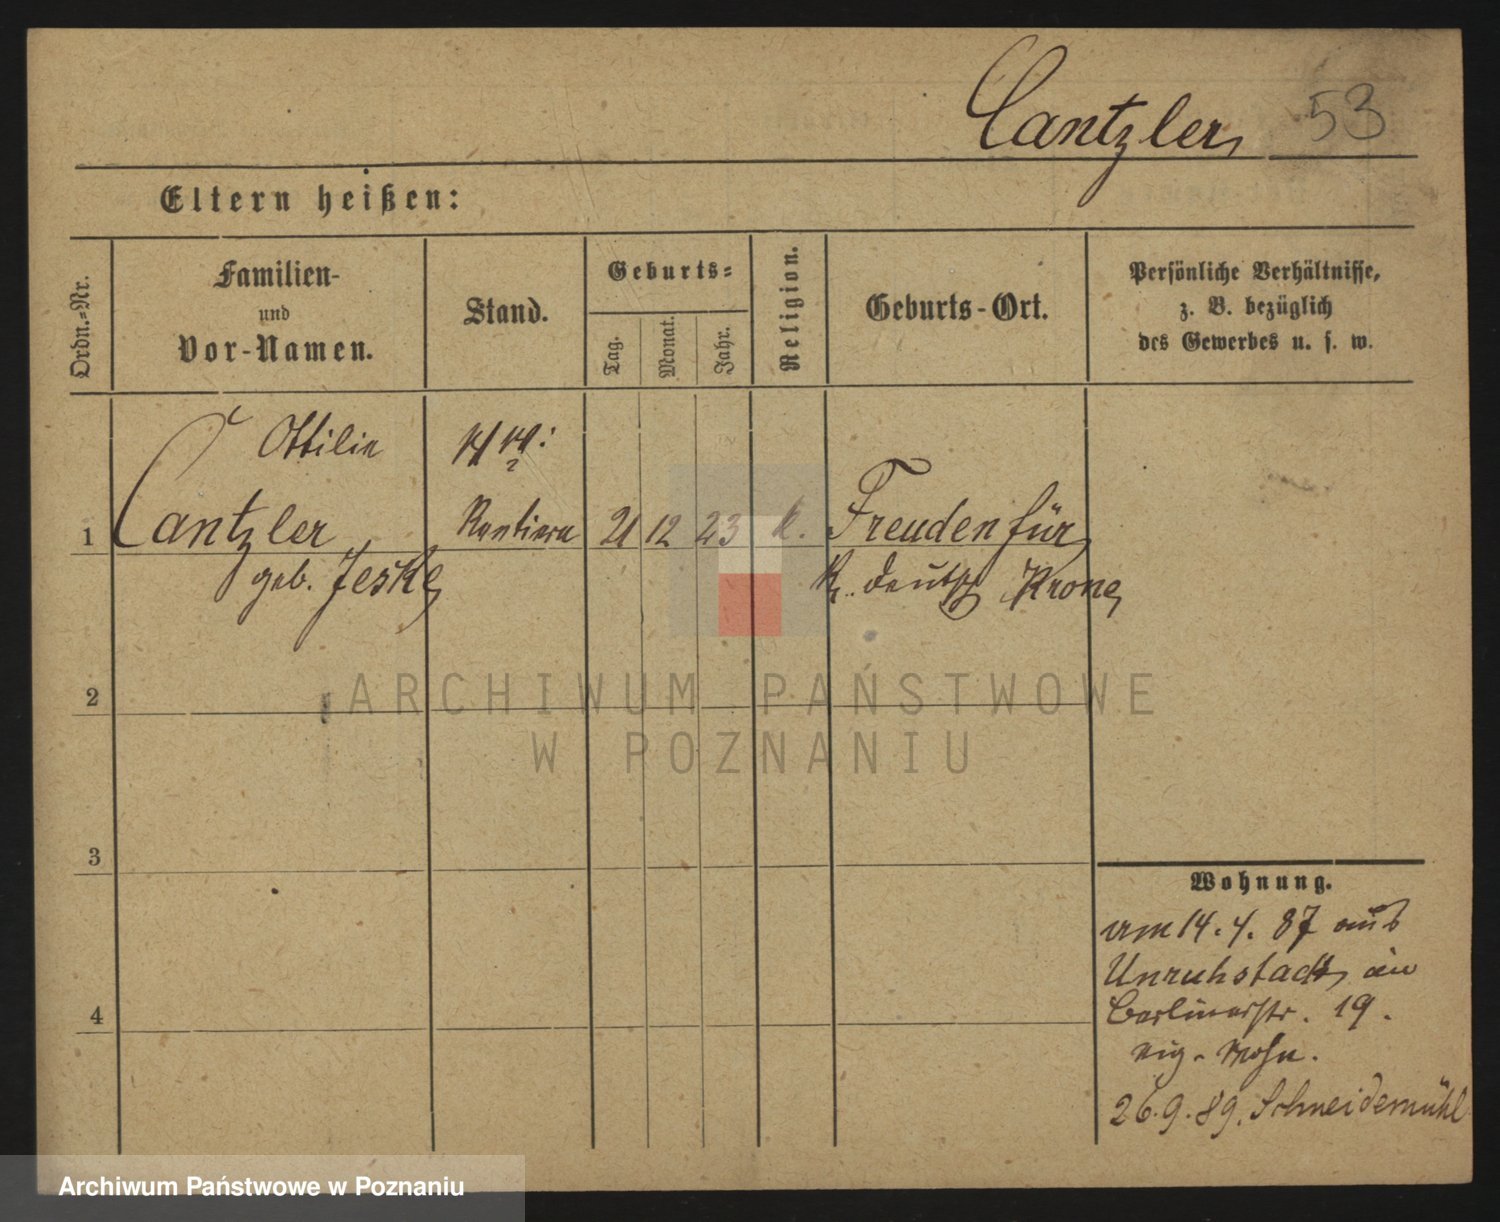 Cantzler, 53
Eltern heißen:
Ordn.-Nr.
Familien-
und
Vor-Namen.
Stand.
Geburts-
Tag.
Monat.
Jahr.
Religion.
Geburts-Ort.
Persönliche Verhältnisse,
z. B. bezüglich
des Gewerbes u. s. w.
Ottilie
1 Cantzler Rentiere 21 12 23 k. Freudenfür
geb. Jeske Kr. deutsch Krone,
2
3
4
Wohnung.
am 14. 4. 87 aus
Unruhstadt, in
Berlinerstr. 19.
eig. Wohn.
26.9.89. Schneidemühl
ARCHIWUM PAŃSTWOWE
W POZNANIU
Archiwum Państwowe w Poznaniu